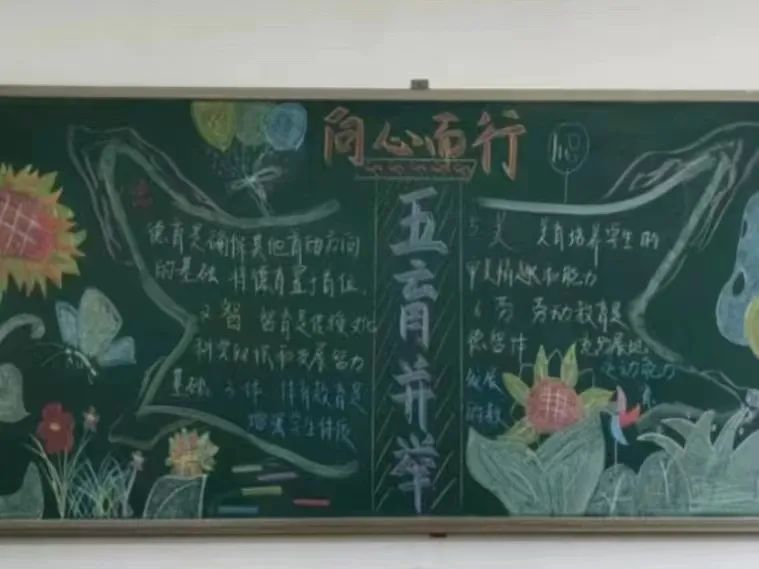 向心而行
五育并举
德
德育是确保其他育动方向
的基础 将德育置于首位
2 智 智育是传授文化
科学知识和发展智力
基础 3 体 体育教育是
增强学生体质
美 美育培养学生的
审美情趣和能力
劳 劳动教育是
德智体
发展
的教
劳动能力